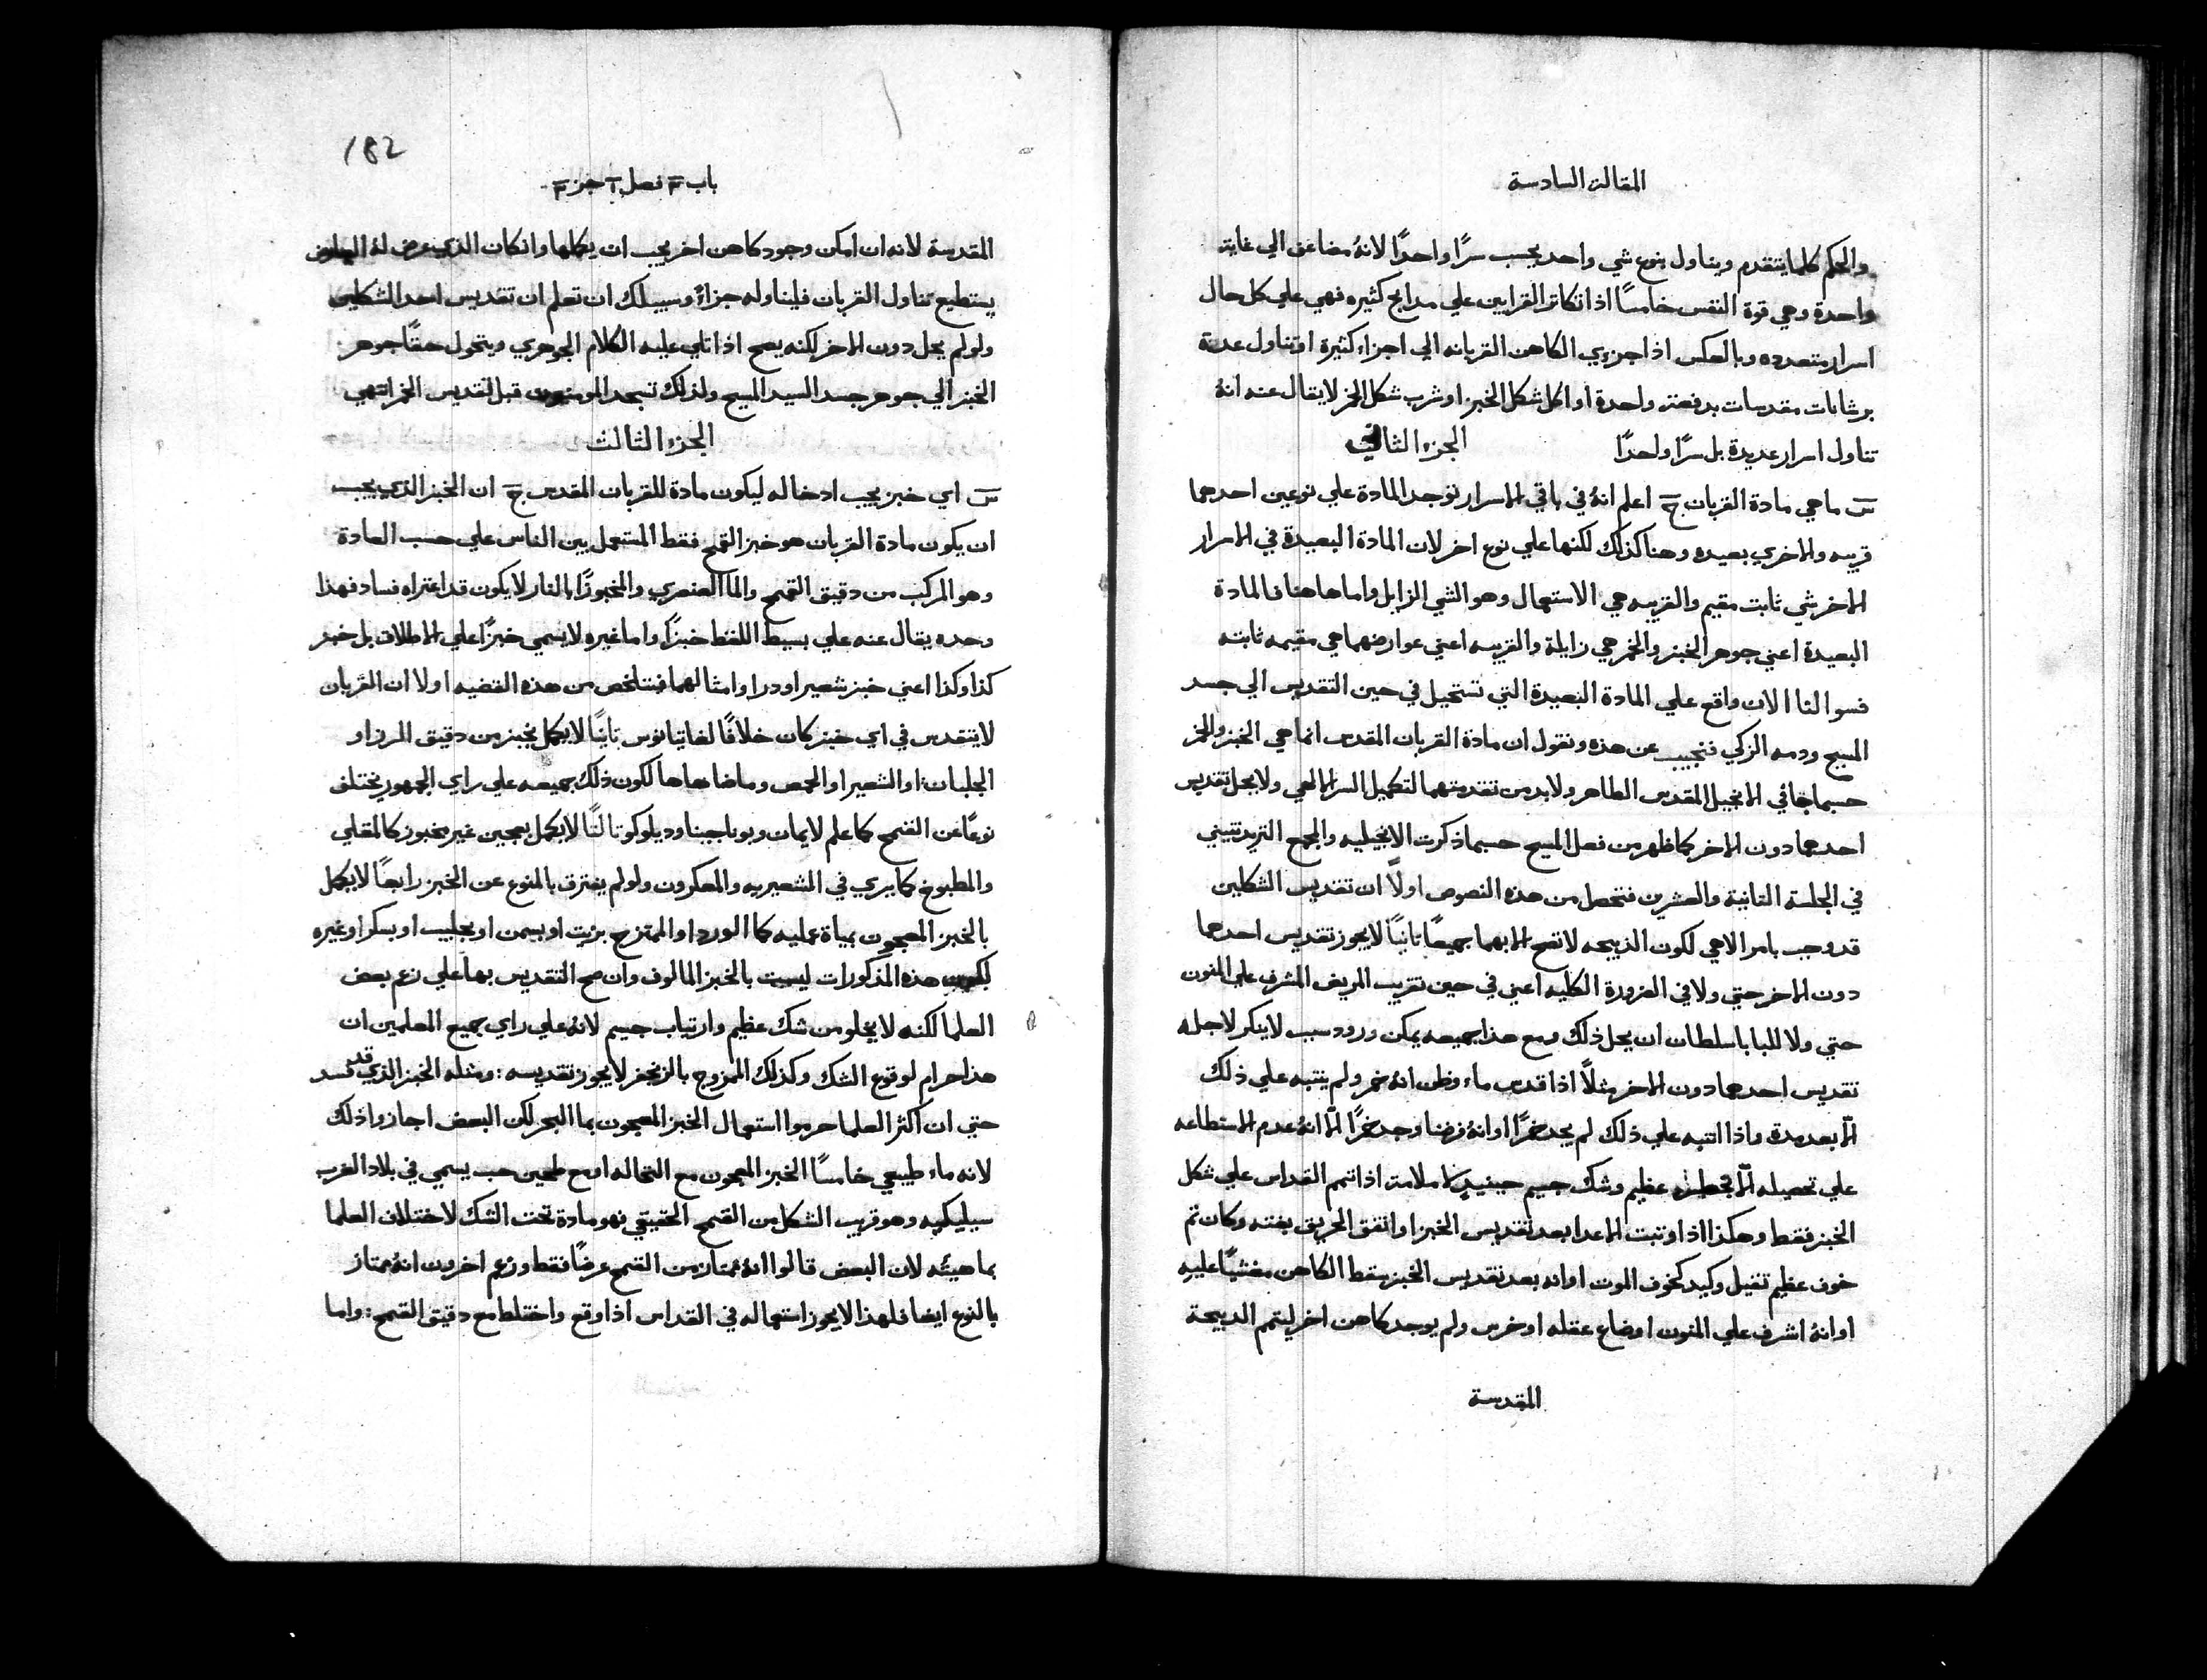 المقالة السادسة
والحكم كلما يتقدم ويناول بنوع شي واحد يحسب سرًا واحدًا لانهُ مضاعف الي غاية
واحدة وهي قوة النفس خامسًا اذا تكاثر القرابين علي مدابح كثيره فهي علي كل حال
اسرار متعدده وبالعكس اذا جزي الكاهن القربانه الي اجزاء كثيرة او تناول عدة
برشانات مقدسات بدفعة واحدة او اكل شكل الخبز او شرب شكل الخمر لا يقال عنه انهُ
تناول اسرار عديدة بل سرًا واحدًا الجزء الثاني
س ما هي مادة القربان ج اعلم انهُ في باقي الاسرار توجد المادة علي نوعين احدهما
قريبه والاخري بعيده وهنا كذلك لكنها علي نوع اخر لان المادة البعيدة في الاسرار
الاخر شي ثابت مقيم والقريبه هي الاستعمال وهو الشي الزايل واما هاهنا فالمادة
البعيدة اعني جوهر الخبز والخمر هي زايلة والقريبه اعني عوارضهما هي مقيمه ثابته
فسوالنا الان واقع علي المادة البعيدة التي تستحيل في حين التقديس الي جسد
المسيح ودمه الزكي فنجيب عن هذه ونقول ان مادة القربان المقدس انما هي الخبز والخمر
حسبما جا في الانجيل المقدس الطاهر ولا بد من تقدمتهما لتكميل السر الالهي ولا يحل تقديس
احدهما دون الاخر كما ظهر من فعل المسيح حسبما ذكرت الانجيليه والمجمع التريدنتيني
في الجلسة الثانية والعشرين فتحصل من هذه النصوص اولًا ان تقديس الشكلين
قد وجب بامر الاهي لكون الذبيحه لا تصح الا بهما جميعًا ثانيًا لا يجوز تقديس احدهما
دون الاخر حتي ولا في الضرورة الكليه اعني في حين تقريب المريض المشرف علي المنون
حتي ولا للبابا سلطان ان يحل ذلك ومع هذا جميعه يمكن ورود سبب لا ينكر لاجله
تقديس احدهما دون الاخر مثلًا اذا قدس ماء وظن انهُ خمر ولم ينتبه علي ذلك
الا بعد مدة واذا انتبه علي ذلك لم يجد خمرًا او انهُ فرضنا وجد خمرًا الا انهُ عدم الاستطاعه
علي تحصيله الا بخطر عظيم وشك جسيم حينيدٍ لا ملامة اذا تمم القداس علي شكل
الخبز فقط وهكذا اذا وثبت الاعدا بعد تقديس الخبز او اتفق الحريق بغته وكان ثم
خوف عظيم ثقيل وكيد كخوف الموت او انه بعد تقديس الخبز سقط الكاهن مغشيًا عليهِ
او انهُ اشرف علي المنون او ضاع عقله او خرس ولم يوجد كاهن اخر ليتمم الدبيحة
المقدسة
182
باب ٣ فصل ٢ جز ٣
المقدسة لانه ان امكن وجود كاهن اخر يجب ان يكملها وانكان الذي عرض لهُ
يستطيع تناول القربان فليناوله جزاءً وسبيلك ان تعلم ان تقديس احد الشكلين
ولو لم يحل دون الاخر لكنه يصح اذا تلي عليه الكلام الجوهري ويتحول حقًا جوهر
الخبز الي جوهر جسد السيد المسيح ولذلك تسجد المومنون قبل تقديس الخمر انتهي
الجزء الثالث
س اي خبز يجب ادخاله ليكون مادة للقربان المقدس ج ان الخبز الذي يجب
ان يكون مادة القربان هو خبز القمح فقط المستعمل بين الناس علي حسب العادة
وهو المركب من دقيق القمح والما العنصري والمخبوزًا بالنار لا يكون قد اعتراه فساد فهذا
وحده يقال عنه علي بسيط اللفظ خبزًا واما غيره لا يسمي خبزًا علي الاطلاق بل خبز
كذا وكذا اعني خبز شعير او درا وامثالهما فتلخص من هذه القضيه اولا ان القربان
لا يتقدس في اي خبز كان خلافًا لغايتانوس ثانيًا لا يكمل بخبز من دقيق الرز او
الجلبان او الشعير او الحمص وما ضاهاها لكون ذلك جميعه علي راي الجمهور يختلف
نوعًا عن القمح كما علم لايمان وبوناجينا وديلوكو ثالثًا لا يكمل بعجين غير مخبوز كالمقلي
والمطبوخ كما يري في الشعيريه والمعكرون ولو لم يفترق بالنوع عن الخبز رابعًا لا يكمل
بالخبز المعجون بمياة عمليه كما الورد او الممتزج بزيت او بسمن او بحليب او بسكر او غيره
لكون هذه المذكورات ليست بالخبز المالوف وان صح التقديس بها علي زعم بعض
العلما لكنه لا يخلو من شك عظيم وارتياب جسيم لانهُ علي راي جميع المعلمين ان
هذا حرام لوقوع الشك وكذلك الممزوج بالزنجفر لا يجوز تقديسه : ومثله الخبز الذي قد فسد
حتي ان اكثر العلما حرموا استعمال الخبز المعجون بما البحر لكن البعض اجازوا ذلك
لانه ماء طبيعي خامسًا الخبز المعجون مع النخاله او مع طحين حب يسمي في بلاد الغرب
سيليكيه وهو قريب الشكل من القمح الحقيقي فهو مادة تحت الشك لاختلاف العلما
بماهيته لان البعض قالوا انهُ ممتاز من القمح عرضًا فقط وزعم اخرون انهُ ممتاز
بالنوع ايضا فلهذا لا يجوز استعماله في القداس اذا وقع واختلط مع دقيق القمح : واما